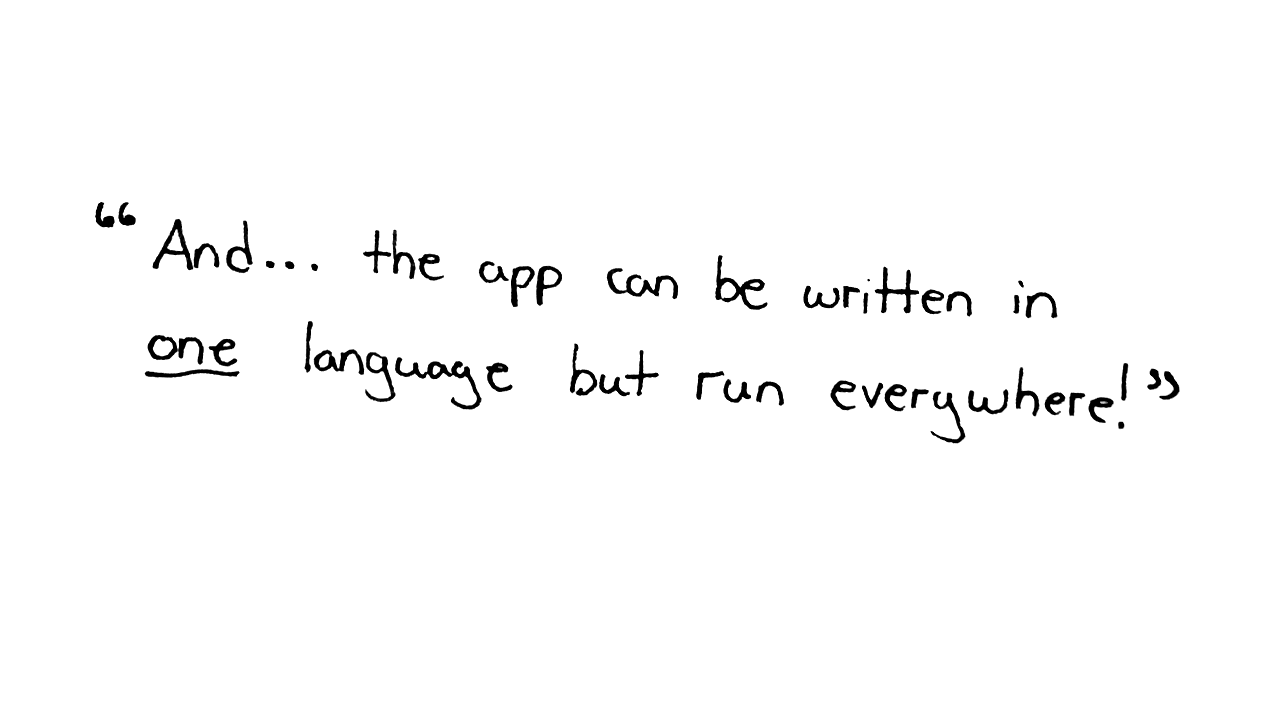 “And... the app can be written in
one language but run everywhere!”